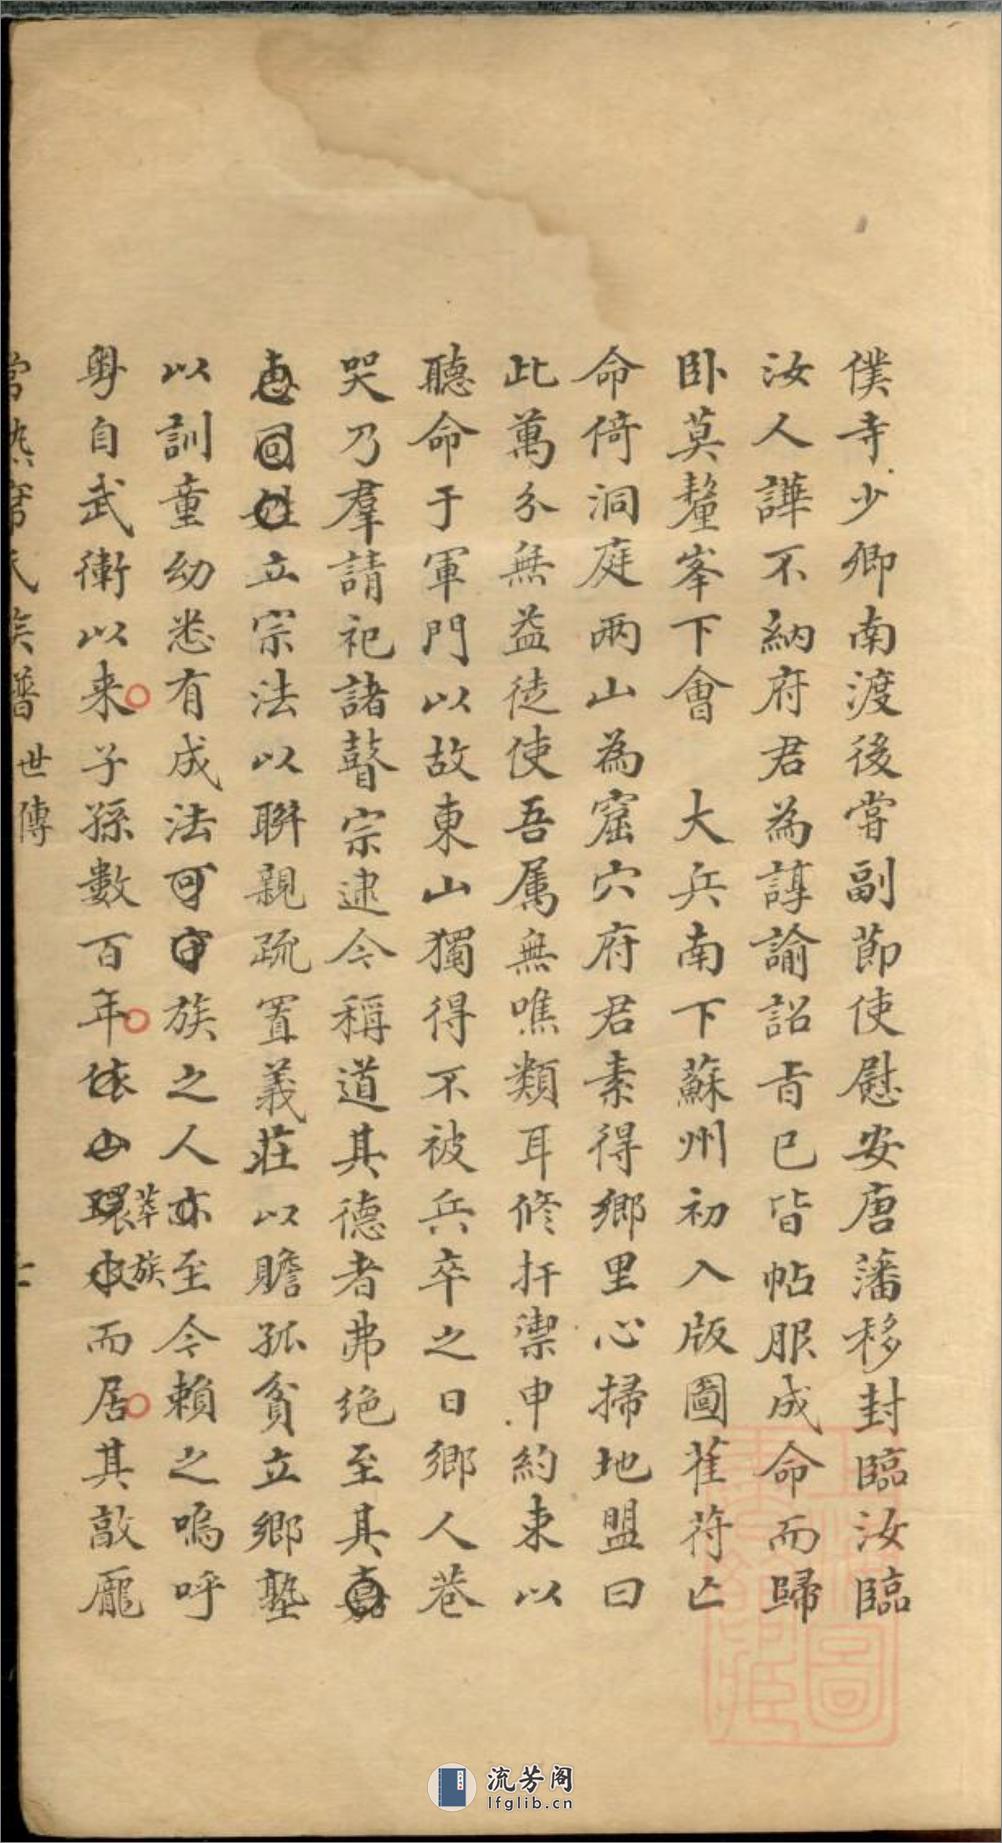 僕寺少卿南渡後嘗副節使慰安唐藩移封臨汝臨
汝人譁不納府君為諄諭詔旨已皆帖服成命而歸
卧莫釐峯下會　大兵南下蘇州初入版圖萑苻亡
命倚洞庭兩山為窟穴府君素得鄉里心掃地盟曰
此萬分無益徒使吾属無噍類耳修扞禦申約束以
聽命于軍門以故東山獨得不被兵卒之日鄉人巷
哭乃羣請祀諸瞽宗逮今稱道其德者弗絶至其嘉
惠同姓立宗法以聯親疏置義莊以贍孤貧立鄉塾
以訓童幼悉有成法可守族之人亦至今賴之嗚呼
粤自武衛以来子孫數百年依山環水而居其敵龐
萃族
常熟席氏族譜 世傳
流芳阁
lfglib.cn